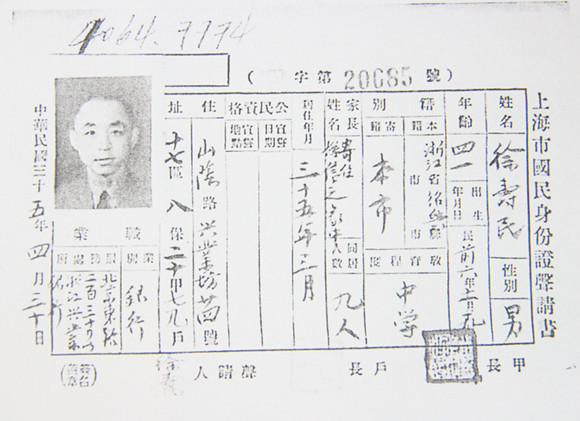 4064.7774
(字第20685號)
上海市國民身份證聲請書
姓名
徐壽民
性別
男
年齡
四一
出生年月日
民前六年
籍別
本籍
浙江省紹興縣市
寄籍
本市
教育程度
中学
家長姓名
寄住
同居人數
九人
居住年月
三十五年三月
公民資格
宣誓日期
宣誓地點
住址
山陰路興業坊廿四號
十七區八保二十甲七九戶
職業
業別
銀行
服務處所
北京東路
二百三十号
浙江興業
銀行
中華民國三十五年四月三十日
甲長
戶長
聲請人